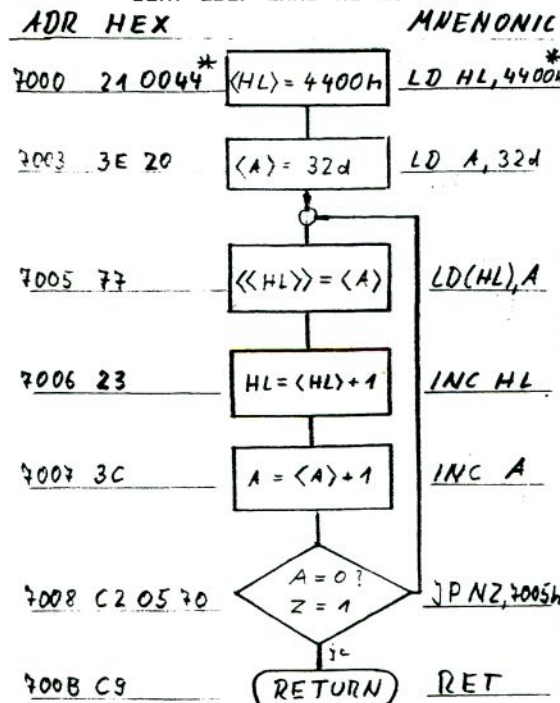 ADR HEX MNENONIC
7000 21 0044* <HL> = 4400h LD HL, 4400h*
7003 3E 20 <A> = 32d LD A, 32d
7005 77 <<HL>> = <A> LD(HL), A
7006 23 HL = <HL> + 1 INC HL
7007 3C A = <A> + 1 INC A
A = 0 ?
7008 C2 05 70 Z = 1 JP NZ, 7005h
700B C9 RETURN RET